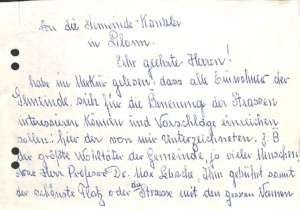 An die Gemeinde-Kanzlei
in
Sehr geehrte Herren!
habe im Merkur gelesen, dass alle Einwohner der
Gemeinde, sich für die Benennung der Strassen
interessieren können und Vorschläge einreichen
sollen: hier der von mir Unterzeichneten. z. B
der größte Wohltäter der Gemeinde, so vieler Menschen
Herr Professor Dr. Max Ihm gebührt somit
der schönste Platz oder die Strasse mit den grossen Namen